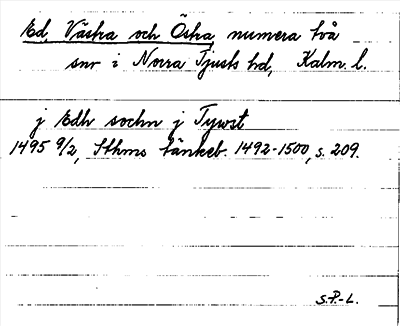 Ed, Västra och Östra, numera två
snr i Norra Tjusts hd, Kalm. l.
j Edh sochn j Tywst
1495 9/2, Sthms tänkeb. 1492-1500, s. 209.
S.P-L.